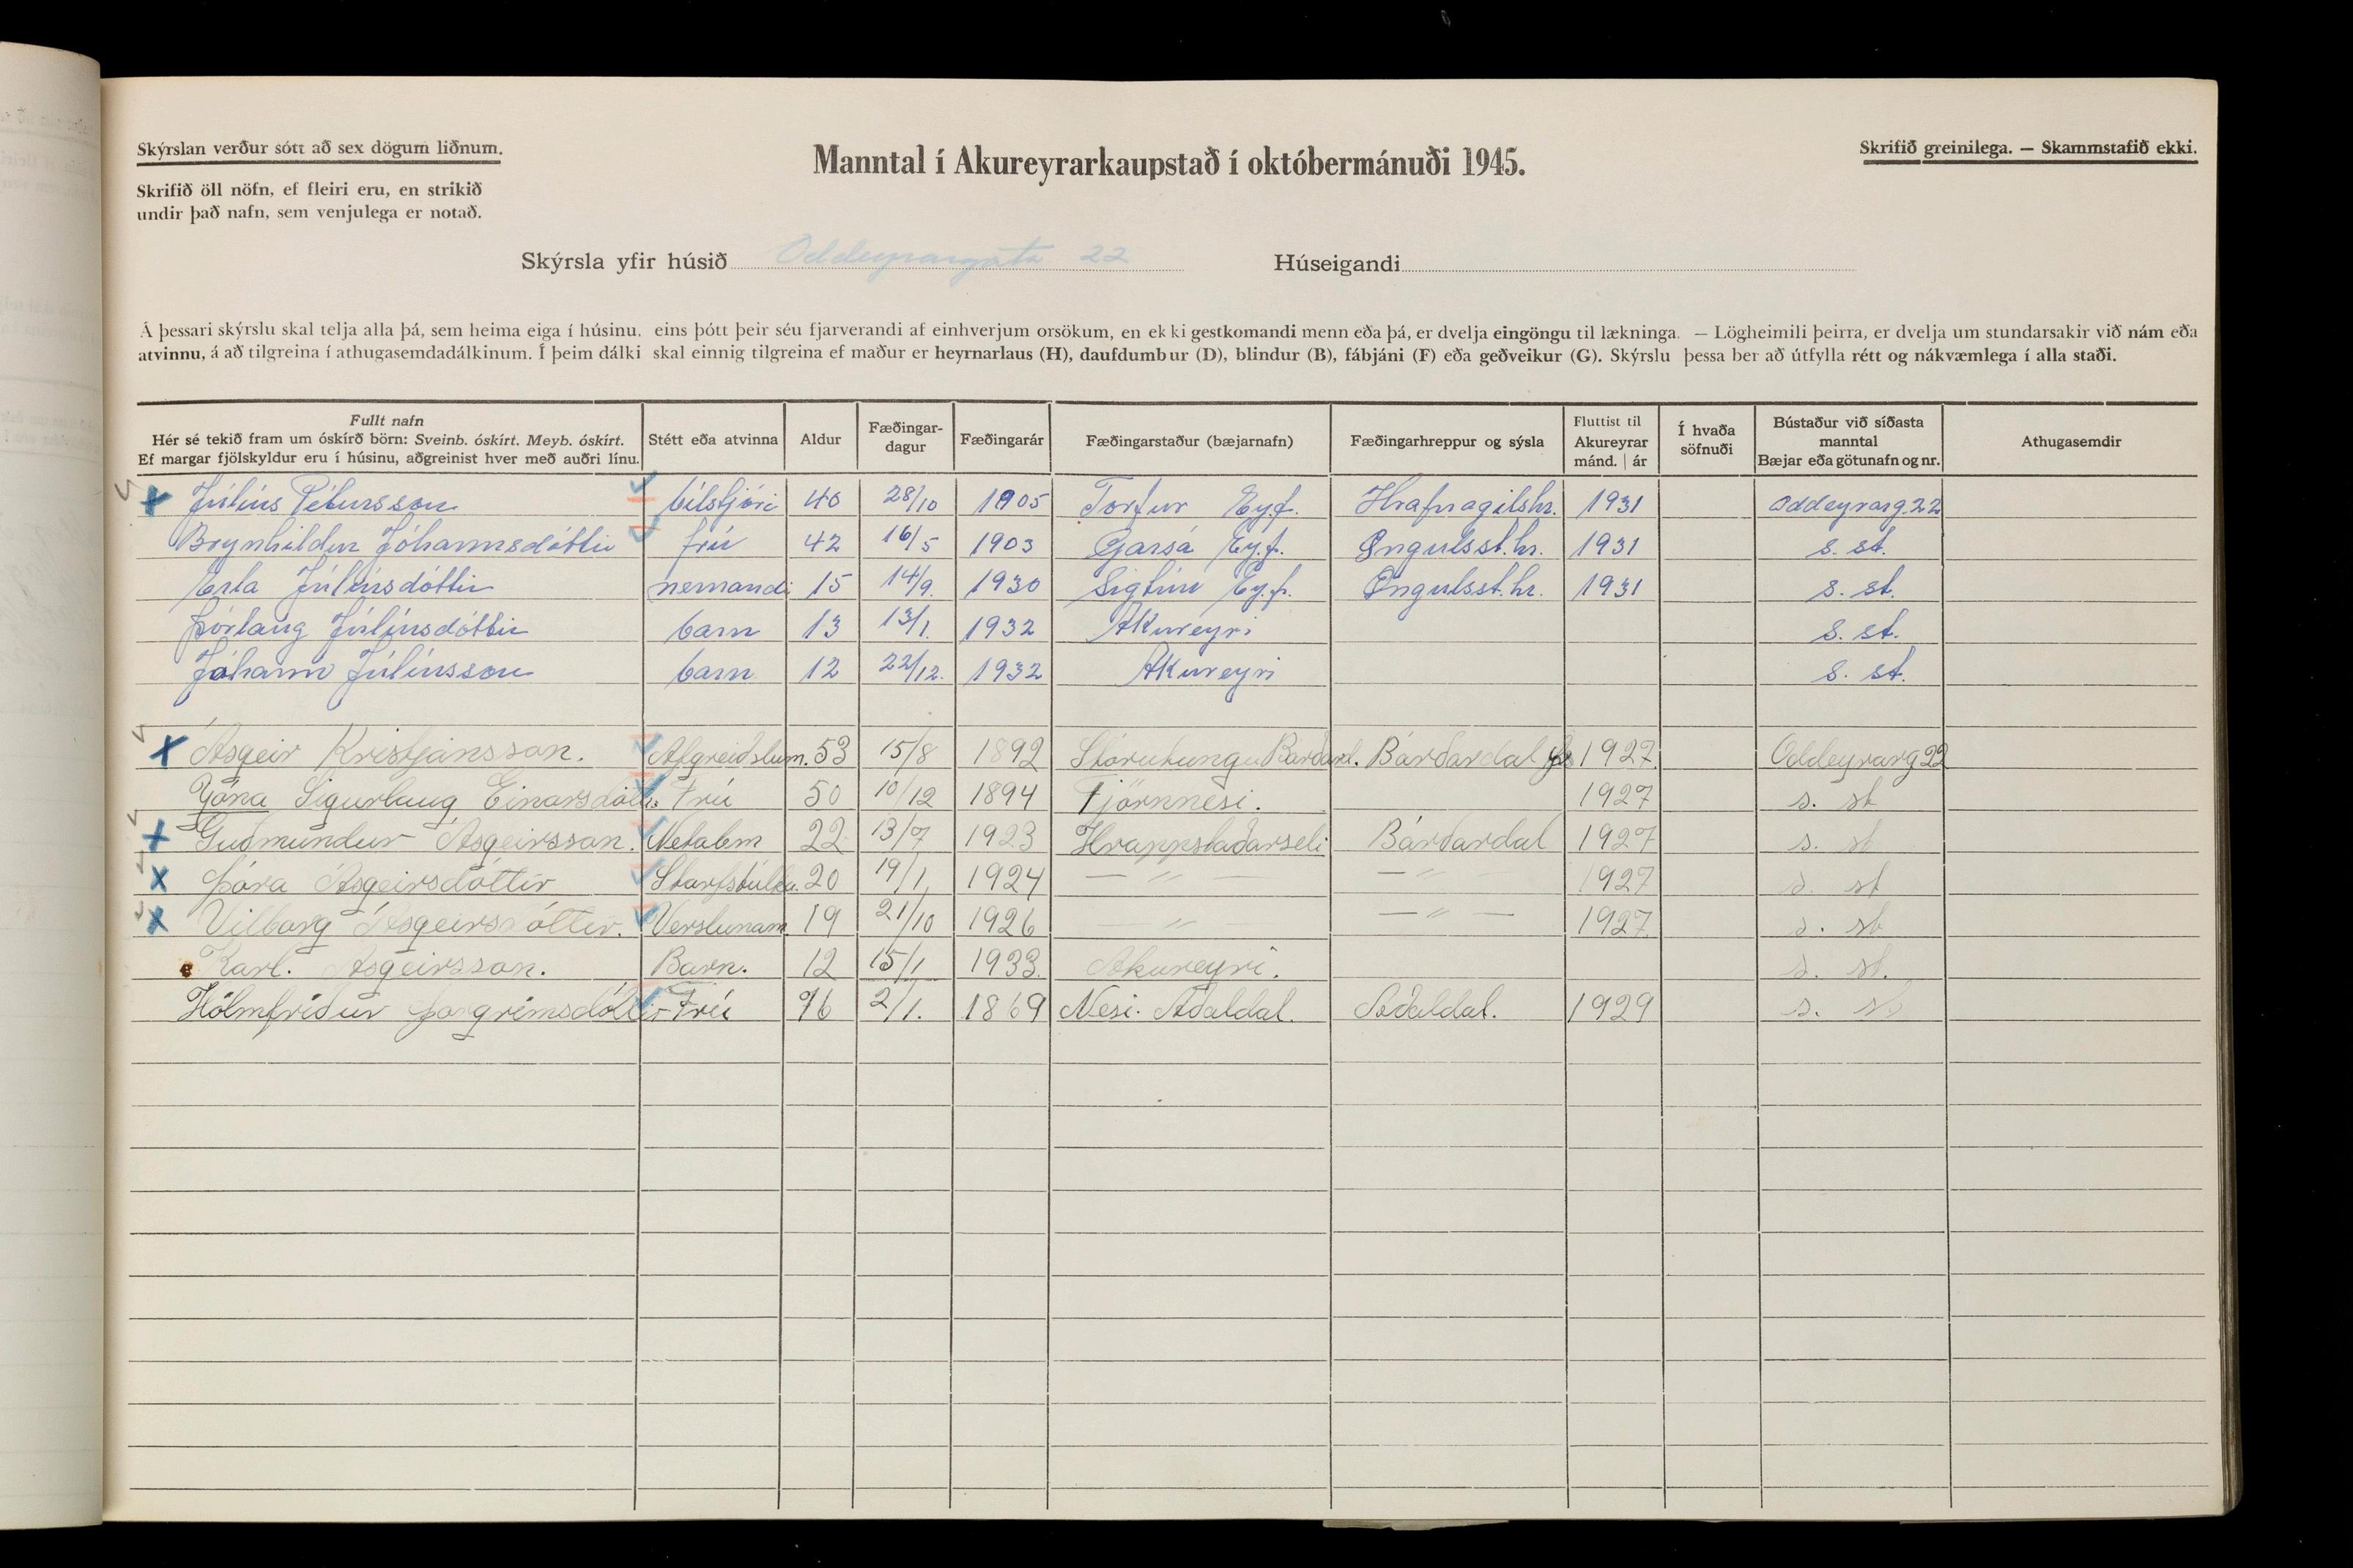 Skýrslan verður sótt að sex dögum liðnum.
Skrifið öll nöfn, ef fleiri eru, en strikið
undir það nafn, sem venjulega er notað.
Manntal í Akureyrarkaupstað í októbermánuði 1945.
Skrifið greinilega. — Skammstafið ekki.
Skýrsla yfir húsið Oddeyrargata 22 Húseigandi
Á þessari skýrslu skal telja alla þá, sem heima eiga í húsinu, eins þótt þeir séu fjarverandi af einhverjum orsökum, en ekki gestkomandi menn eða þá, er dvelja eingöngu til lækninga. — Lögheimili þeirra, er dvelja um stundarsakir við nám eða
atvinnu, á að tilgreina í athugasemdadálkinum. Í þeim dálki skal einnig tilgreina ef maður er heyrnarlaus (H), daufdumbur (D), blindur (B), fábjáni (F) eða geðveikur (G). Skýrslu þessa ber að útfylla rétt og nákvæmlega í alla staði.
Fullt nafn
Hér sé tekið fram um óskírð börn: Sveinb. óskírt. Meyb. óskírt.
Ef margar fjölskyldur eru í húsinu, aðgreinist hver með auðri línu.
Stétt eða atvinna
Aldur
Fæðingar-
dagur
Fæðingarár
Fæðingarstaður (bæjarnafn)
Fæðingarhreppur og sýsla
Fluttist til
Akureyrar
mánd. | ár
Í hvaða
söfnuði
Bústaður við síðasta
manntal
Bæjar eða götunafn og nr.
Athugasemdir
Júlíus Pétursson bílstjóri 40 28/10 1905 Torfur Eyf. Hrafnagilshr. 1931 Oddeyrarg. 22
Brynhildur Jóhannsdóttir frú 42 16/5 1903 Garsá Ey.f. Öngulsst.hr. 1931 s. st.
Erla Júlíusdóttir nemandi 15 14/9. 1930 Sigtún Ey.f. Öngulsst.hr. 1931 s. st.
Þórlaug Júlíusdóttir barn 13 13/1. 1932 Akureyri s. st.
Jóhann Júlíusson barn 12 22/12. 1932 Akureyri s. st.
Ásgeir Kristjánsson. Afgreiðslum. 53 15/8 1892 Stórutungu Bárðard. Bárðardal 1927 Oddeyrarg 22
Jóna Sigurlaug Einarsdóttir Frú 50 10/12 1894 Tjörnnesi. 1927 s. st
Guðmundur Ásgeirsson. Netalem 22 13/7 1923 Hrappstaðarseli Bárðardal 1927 s. st
Þóra Ásgeirsdóttir Starfstúlka. 20 19/1 1924 — " — — " — 1927 s. st
Vilborg Ásgeirsdóttir. Verslunam 19 21/10 1926 — " — — " — 1927 s. st
Karl. Ásgeirsson. Barn. 12 15/1 1933. Akureyri. s. st.
Hólmfríður Þorgrímsdóttir Frú 76 2/1. 1869 Nesi. Aðaldal. Aðaldal. 1929 s. st